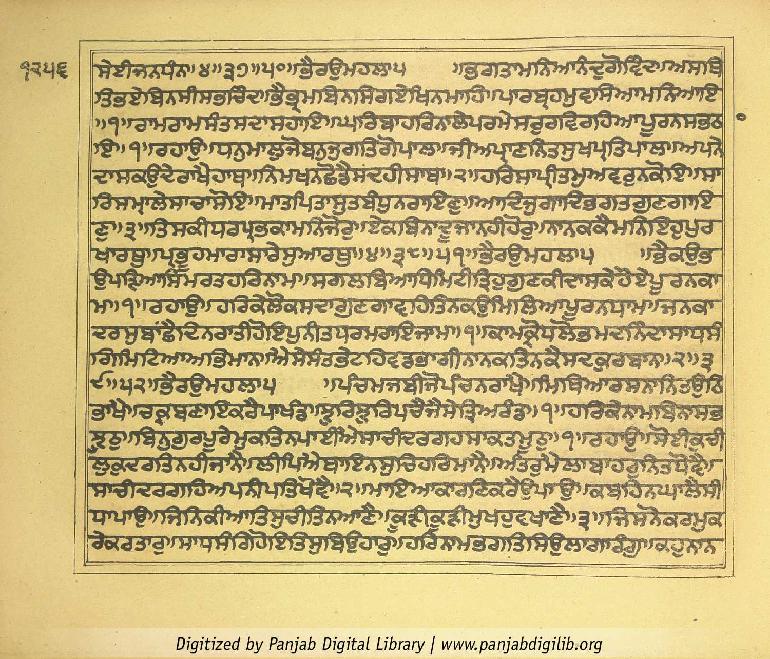 ੧੨੫੬
ਸੇਈਜਨਧੰਨ॥੪॥੩੭॥੫੦॥ਭੈਰਉਮਹਲਾ੫ ॥ਭਗਤਾਮਨਿਆਨੰਦੁਗੋਵਿੰਦ॥ਅਸਥਿ
ਤਿਭਏਬਿਨਸੀਸਭਚਿੰਦ॥ਭੈਭ੍ਰਮਬਿਨਸਿਗਏਖਿਨਮਾਹਿ॥ਪਾਰਬ੍ਰਹਮੁਵਸਿਆਮਨਿਆਇ
॥੧॥ਰਾਮਰਾਮਸੰਤਸਦਾਸਹਾਇ॥ਘਰਿਬਾਹਰਿਨਾਲੇਪਰਮੇਸਰੁਰਵਿਰਹਿਆਪੂਰਨਸਭਠਾ
ਇ॥੧॥ਰਹਾਉ॥ਧਨੁਮਾਲੁਜੋਬਨੁਜੁਗਤਿਗੋਪਾਲ॥ਜੀਅਪ੍ਰਾਣਨਿਤਸੁਖਪ੍ਰਤਿਪਾਲ॥ਅਪਨੇ
ਦਾਸਕਉਦੇਰਾਖੈਹਾਥ॥ਨਿਮਖਨਛੋਡੈਸਦਹੀਸਾਥ॥੨॥ਹਰਿਸਾਪ੍ਰੀਤਮੁਅਵਰੁਨਕੋਇ॥ਸਾ
ਰਿਸਮਾਲੇਸਾਚਾਸੋਇ॥ਮਾਤਪਿਤਾਸੁਤਬੰਧੁਨਰਾਇਣੁ॥ਆਦਿਜੁਗਾਦਿਭਗਤਗੁਣਗਾਇ
ਣੁ॥੩॥ਤਿਸਕੀਧਰਪ੍ਰਭਕਾਮਨਿਜੋਰੁ॥ਏਕਬਿਨਾਦੂਜਾਨਹੀਹੋਰੁ॥ਨਾਨਕਕੈਮਨਿਇਹੁਪੁਰ
ਖਾਰਥੁ॥ਪ੍ਰਭੂਹਮਾਰਾਸਾਰੇਸੁਆਰਥੁ॥੪॥੩੮॥੫੧॥ਭੈਰਉਮਹਲਾ੫ ॥ਭੈਕਉਭ
ਉਪੜਿਆਸਿਮਰਤਹਰਿਨਾਮ॥ਸਗਲਬਿਆਧਿਮਿਟੀਤ੍ਰਿਹੁਗੁਣਕੀਦਾਸਕੇਹੋਏਪੂਰਨਕਾ
ਮ॥੧॥ਰਹਾਉ॥ਹਰਿਕੇਲੋਕਸਦਾਗੁਣਗਾਵਹਿਤਿਨਕਉਮਿਲਿਆਪੂਰਨਧਾਮ॥ਜਨਕਾ
ਦਰਸੁਬਾਂਛੈਦਿਨਰਾਤੀਹੋਇਪੁਨੀਤਧਰਮਰਾਇਜਾਮ॥੧॥ਕਾਮਕ੍ਰੋਧਲੋਭਮਦਨਿੰਦਾਸਾਧਸੰ
ਗਿਮਿਟਿਆਅਭਿਮਾਨ॥ਐਸੇਸੰਤਭੇਟਹਿਵਡਭਾਗੀਨਾਨਕਤਿਨਕੈਸਦਕੁਰਬਾਨ॥੨॥੩
੯॥੫੨॥ਭੈਰਉਮਹਲਾ੫ ॥ਪੰਚਮਜਬੀਜੋਪੰਚਨਰਾਖੈ॥ਮਿਥਿਆਰਸਨਾਨਿਤਉਠਿ
ਭਾਖੈ॥ਚਕ੍ਰਬਣਾਇਕਰੈਪਾਖੰਡ॥ਝੁਰਿਝੁਰਿਪਚੈਜੈਸੇਤ੍ਰਿਅਰੰਡ॥੧॥ਹਰਿਕੇਨਾਮਬਿਨਾਸਭ
ਝੂਠੁ॥ਬਿਨੁਗੁਰਪੂਰੇਮੁਕਤਿਨਪਾਈਐਸਾਚੀਦਰਗਹਸਾਕਤਮੂਠੁ॥੧॥ਰਹਾਉ॥ਸੋਈਕੁਚੀ
ਲੁਕੁਦਰਤਿਨਹੀਜਾਨੈ॥ਲੀਪਿਐਥਾਇਨਸੁਚਿਹਰਿਮਾਨੈ॥ਅੰਤਰੁਮੈਲਾਬਾਹਰੁਨਿਤਧੋਵੈ॥
ਸਾਚੀਦਰਗਹਿਅਪਨੀਪਤਿਖੋਵੈ॥੨॥ਮਾਇਆਕਾਰਣਿਕਰੈਉਪਾਉ॥ਕਬਹਿਨਘਾਲੈਸੀ
ਧਾਪਾਉ॥ਜਿਨਿਕੀਆਤਿਸੁਚੀਤਿਨਆਣੈ॥ਕੂੜੀਕੂੜੀਮੁਖਹੁਵਖਾਣੈ॥੩॥ਜਿਸਨੋਕਰਮੁਕ
ਰੇਕਰਤਾਰੁ॥ਸਾਧਸੰਗਿਹੋਇਤਿਸੁਬਿਉਹਾਰੁ॥ਹਰਿਨਾਮਭਗਤਿਸਿਉਲਾਗਾਰੰਗੁ॥ਕਹੁਨਾਨ
Digitized by Panjab Digital Library | www.panjabdigilib.org